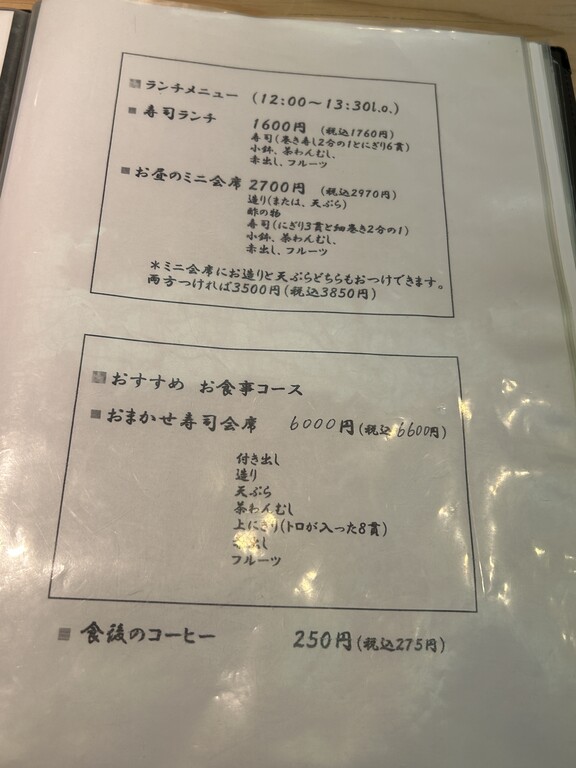 ランチメニュー (12:00～13:30l.o.)
寿司ランチ 1600円 (税込1760円)
寿司(巻き寿し2分の1とにぎり6貫)
小鉢、茶わんむし、
赤出し、フルーツ
お昼のミニ会席 2700円 (税込2970円)
造り(または、天ぷら)
酢の物
寿司(にぎり3貫と細巻き2分の1)
小鉢、茶わんむし、
赤出し、フルーツ
*ミニ会席にお造りと天ぷらどちらもおつけできます。
両方つければ3500円(税込3850円)
おすすめ お食事コース
おまかせ寿司会席 6000円(税込6600円)
付き出し
造り
天ぷら
茶わんむし
上にぎり(トロが入った8貫)
出し
フルーツ
食後のコーヒー 250円(税込275円)